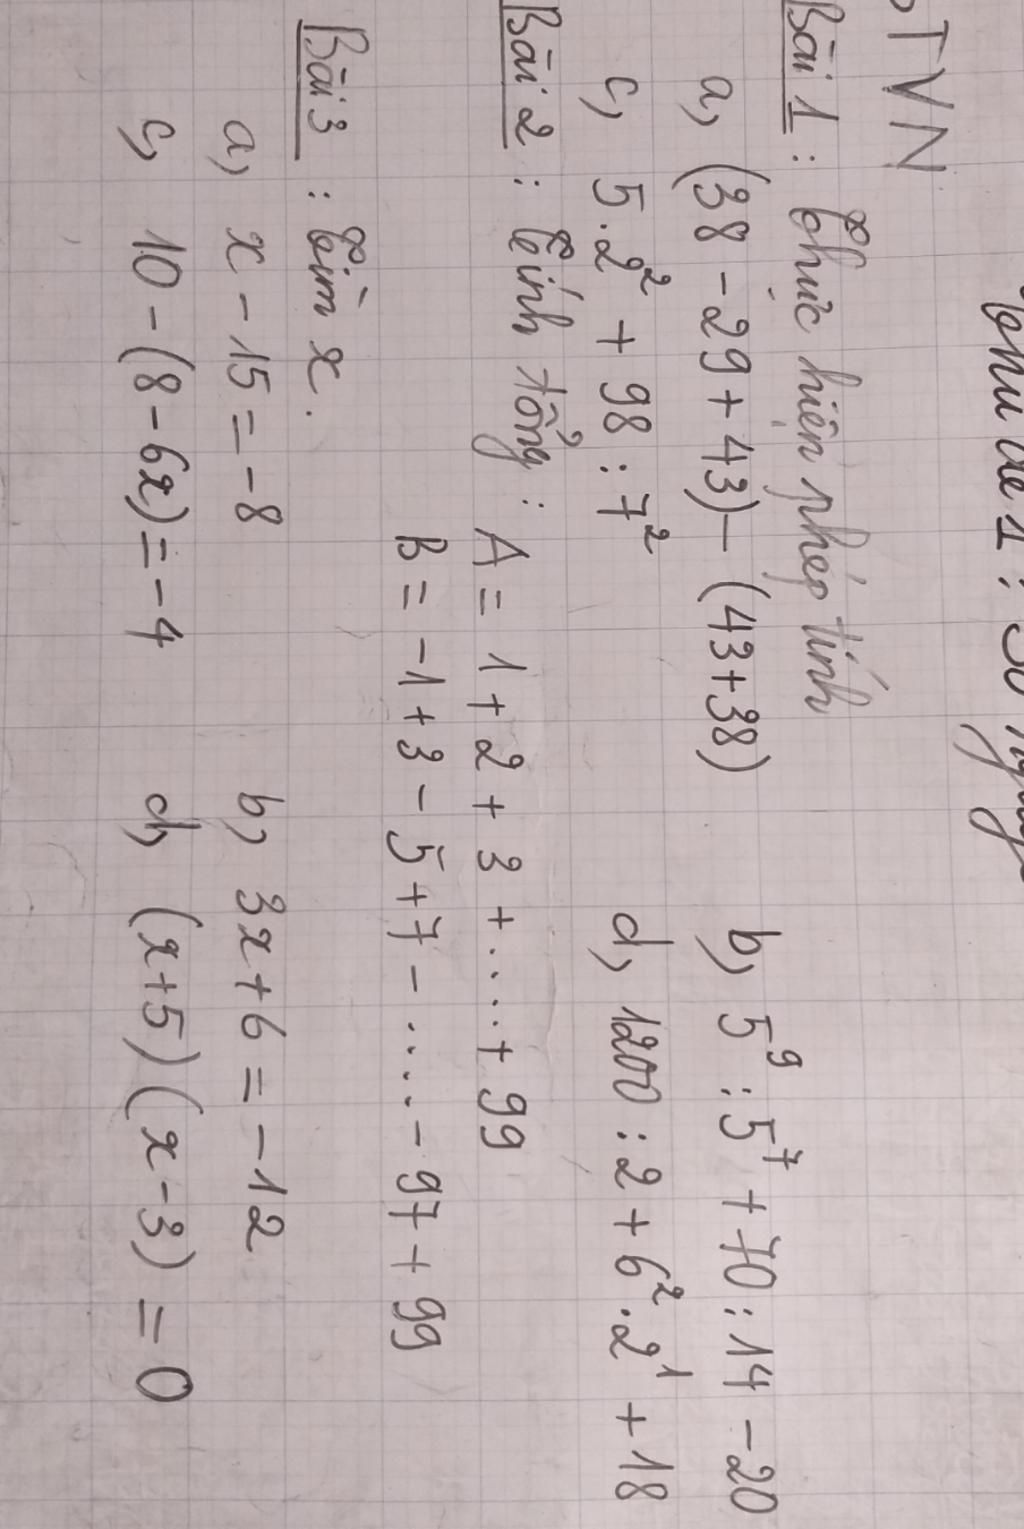 BTVN
Bài 1 : Thực hiện phép tính
a, (38 - 29 + 43) - (43+38) b, 5⁹ : 5⁷ + 70 : 14 - 20
c, 5.2² + 98 : 7² d, 1200 : 2 + 6² . 2¹ + 18
Bài 2 : Tính tổng : A = 1 + 2 + 3 + .... + 99
B = -1 + 3 - 5 + 7 - .... - 97 + 99
Bài 3 : Tìm x.
a, x - 15 = -8 b, 3x + 6 = -12
c, 10 - (8 - 6x) = -4 d, (x+5) (x-3) = 0